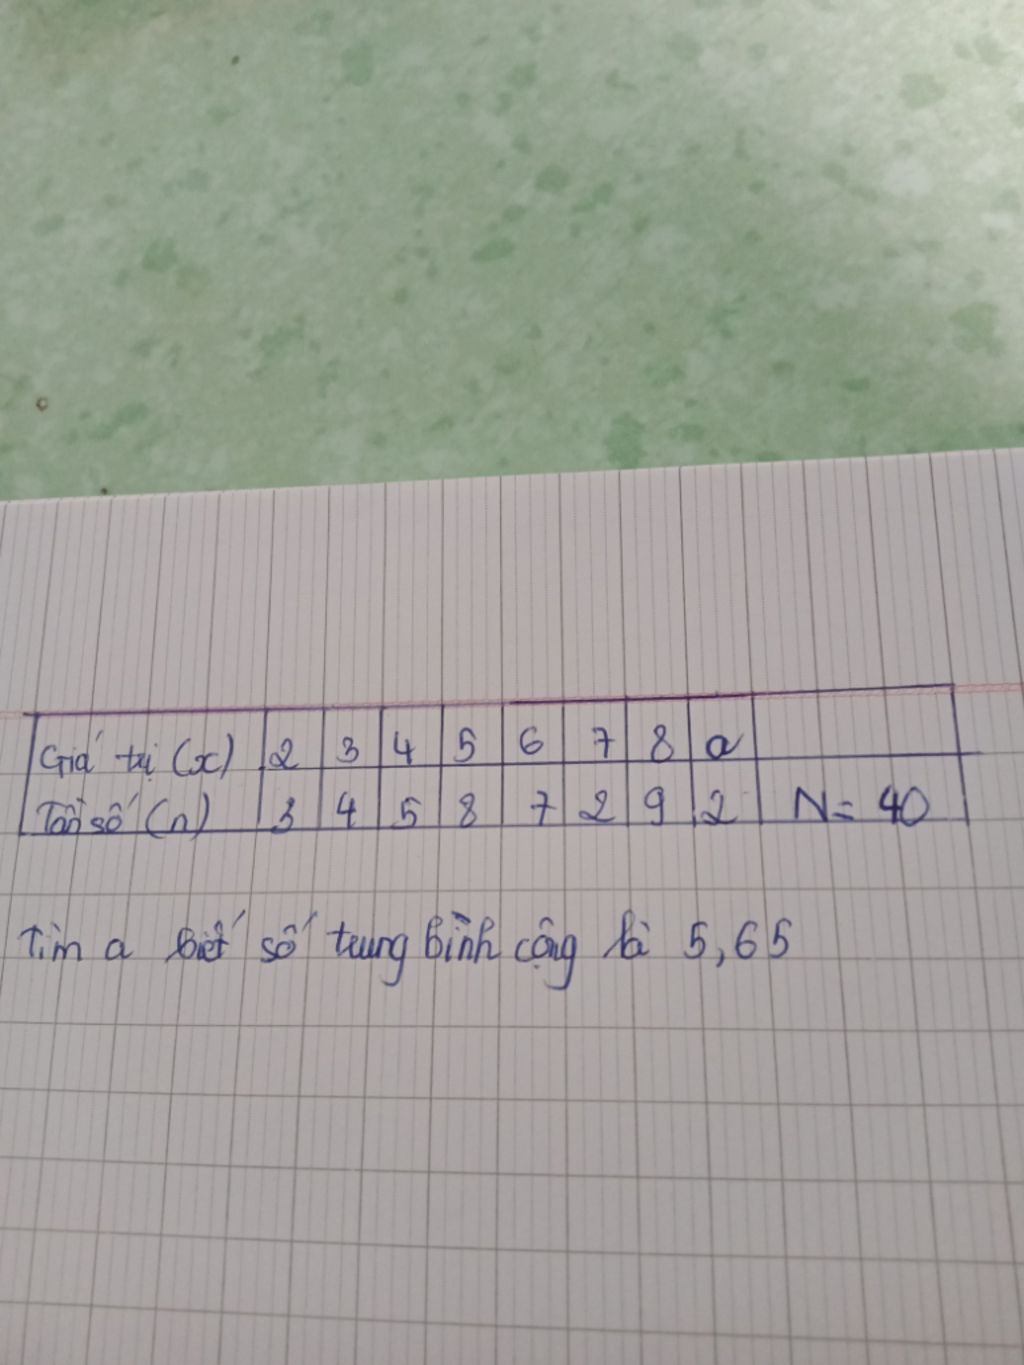 Giá trị (x) 2 3 4 5 6 7 8 a
Tần số (n) 3 4 5 8 7 2 9 2 N= 40
Tìm a biết số trung bình cộng là 5,65